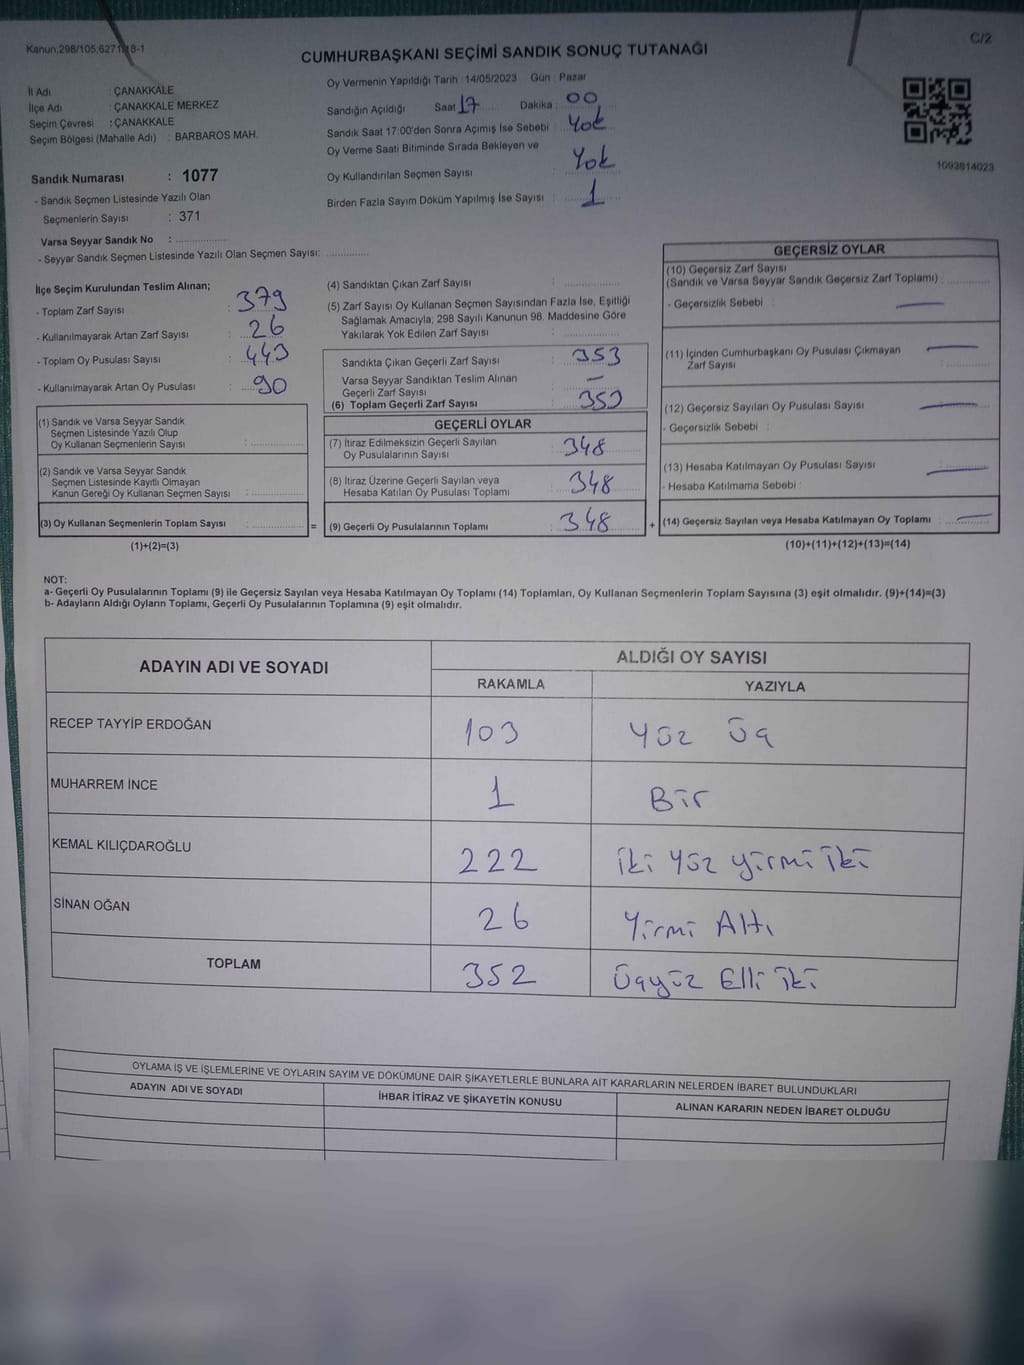 Kanun;298/105;6271/18-1
C/2
CUMHURBAŞKANI SEÇİMİ SANDIK SONUÇ TUTANAĞI
İl Adı : ÇANAKKALE
İlçe Adı : ÇANAKKALE MERKEZ
Seçim Çevresi : ÇANAKKALE
Seçim Bölgesi (Mahalle Adı) : BARBAROS MAH.
Oy Vermenin Yapıldığı Tarih : 14/05/2023 Gün : Pazar
Sandığın Açıldığı Saat 17 Dakika : 00
Sandık Saat 17:00'den Sonra Açımış İse Sebebi : Yok
Oy Verme Saati Bitiminde Sırada Bekleyen ve
Oy Kullandırılan Seçmen Sayısı : Yok
Birden Fazla Sayım Döküm Yapılmış İse Sayısı : 1
1093814023
Sandık Numarası : 1077
- Sandık Seçmen Listesinde Yazılı Olan
Seçmenlerin Sayısı : 371
Varsa Seyyar Sandık No :
- Seyyar Sandık Seçmen Listesinde Yazılı Olan Seçmen Sayısı:
İlçe Seçim Kurulundan Teslim Alınan;
- Toplam Zarf Sayısı : 379
- Kullanılmayarak Artan Zarf Sayısı : 26
- Toplam Oy Pusulası Sayısı : 443
- Kullanılmayarak Artan Oy Pusulası : 90
(1) Sandık ve Varsa Seyyar Sandık
Seçmen Listesinde Yazılı Olup
Oy Kullanan Seçmenlerin Sayısı :
(2) Sandık ve Varsa Seyyar Sandık
Seçmen Listesinde Kayıtlı Olmayan
Kanun Gereği Oy Kullanan Seçmen Sayısı :
(3) Oy Kullanan Seçmenlerin Toplam Sayısı : =
(1)+(2)=(3)
(4) Sandıktan Çıkan Zarf Sayısı :
(5) Zarf Sayısı Oy Kullanan Seçmen Sayısından Fazla İse, Eşitliği
Sağlamak Amacıyla; 298 Sayılı Kanunun 98. Maddesine Göre
Yakılarak Yok Edilen Zarf Sayısı :
Sandıkta Çıkan Geçerli Zarf Sayısı : 353
Varsa Seyyar Sandıktan Teslim Alınan
Geçerli Zarf Sayısı : -
(6) Toplam Geçerli Zarf Sayısı : 353
GEÇERLİ OYLAR
(7) İtiraz Edilmeksizin Geçerli Sayılan
Oy Pusulalarının Sayısı : 348
(8) İtiraz Üzerine Geçerli Sayılan veya
Hesaba Katılan Oy Pusulası Toplamı : 348
(9) Geçerli Oy Pusulalarının Toplamı : 348 +
GEÇERSİZ OYLAR
(10) Geçersiz Zarf Sayısı
(Sandık ve Varsa Seyyar Sandık Geçersiz Zarf Toplamı) :
- Geçersizlik Sebebi : —
(11) İçinden Cumhurbaşkanı Oy Pusulası Çıkmayan
Zarf Sayısı : —
(12) Geçersiz Sayılan Oy Pusulası Sayısı : —
- Geçersizlik Sebebi :
(13) Hesaba Katılmayan Oy Pusulası Sayısı : —
- Hesaba Katılmama Sebebi :
(14) Geçersiz Sayılan veya Hesaba Katılmayan Oy Toplamı : —
(10)+(11)+(12)+(13)=(14)
NOT:
a- Geçerli Oy Pusulalarının Toplamı (9) ile Geçersiz Sayılan veya Hesaba Katılmayan Oy Toplamı (14) Toplamları, Oy Kullanan Seçmenlerin Toplam Sayısına (3) eşit olmalıdır. (9)+(14)=(3)
b- Adayların Aldığı Oyların Toplamı, Geçerli Oy Pusulalarının Toplamına (9) eşit olmalıdır.
ADAYIN ADI VE SOYADI
ALDIĞI OY SAYISI
RAKAMLA YAZIYLA
RECEP TAYYİP ERDOĞAN 103 Yüz Üç
MUHARREM İNCE 1 Bir
KEMAL KILIÇDAROĞLU 222 İki Yüz yirmi iki
SİNAN OĞAN 26 Yirmi Altı
TOPLAM 352 Üçyüz Elli iki
OYLAMA İŞ VE İŞLEMLERİNE VE OYLARIN SAYIM VE DÖKÜMÜNE DAİR ŞİKAYETLERLE BUNLARA AİT KARARLARIN NELERDEN İBARET BULUNDUKLARI
ADAYIN ADI VE SOYADI İHBAR İTİRAZ VE ŞİKAYETİN KONUSU ALINAN KARARIN NEDEN İBARET OLDUĞU